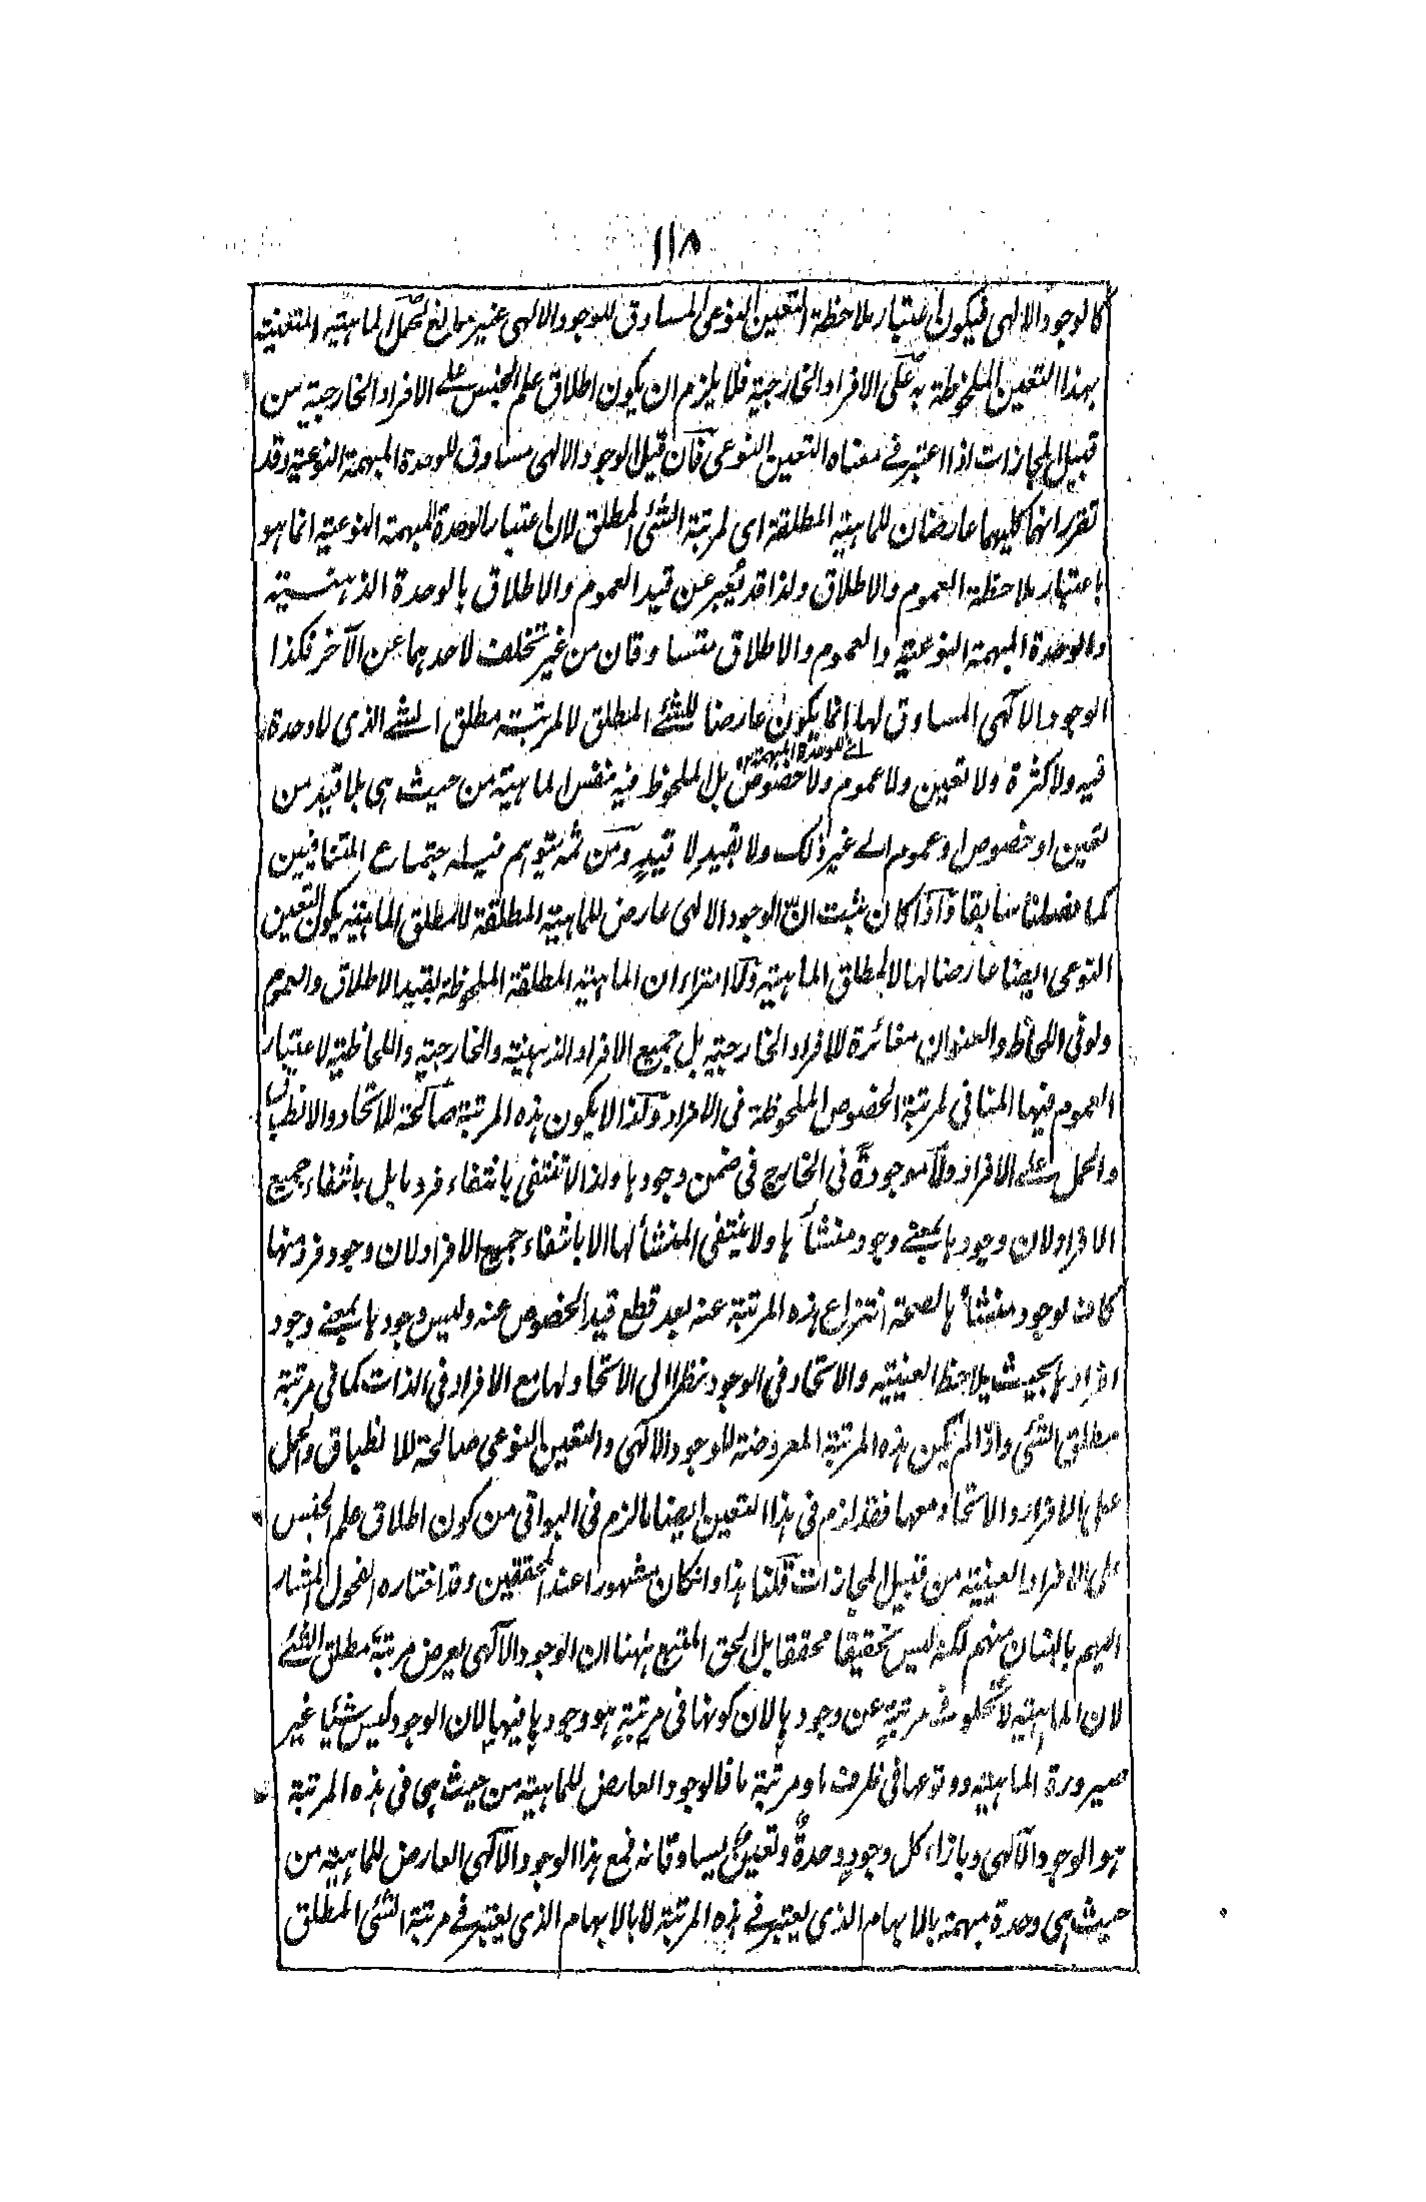 ١١٨
كالوجود الالهى فيكون اعتبار ملاحظة التعين النوعى المساوق للوجود الالهى غير مانع لحمل الماهية المتعينة
بهذا التعين الملحوظة به على الافراد الخارجية فلا يلزم ان يكون اطلاق علم الجنس على الافراد الخارجية من
قبيل المجازات اذا اعتبر فى معناه التعين النوعى فان قيل الوجود الالهى مساوق للوحدة المبهمة النوعية وقد
تقرر انهما كليهما عارضان للماهية المطلقة اى لمرتبة الشئ المطلق لان اعتبار الوحدة المبهمة النوعية انما هو
باعتبار ملاحظة العموم والاطلاق ولذا قد يُعبر عن قيد العموم والاطلاق بالوحدة الذهنية
والوحدة المبهمة النوعية والعموم والاطلاق متساوقان من غير تخلف لاحدهما عن الآخر فكذا
الوجود الآلهى المساوق لها انما يكون عارضا للشئ المطلق لا لمرتبة مطلق الشئ الذى لا وحدة
اے للوحدة المبهمة ١٢
فيه ولا كثرة ولا تعين ولا عموم ولا خصوص بل الملحوظ فيه نفس الماهية من حيث هى بلا قيد من
تعين او خصوص او عموم الے غير ذلك ولا بقيد لا قيدٍ ومن ثمه يتوهم فيه اجتماع المتنافيين
كما فصلنا سابقا واذا كان ثبت انّ الوجود الالهى عارض للماهية المطلقة لا لمطلق الماهية يكون التعين
النوعى ايضا عارضا لها لا لمطلق الماهية ولا امتراء ان الماهية المطلقة الملحوظة بقيد الاطلاق والعموم
ولو فى اللحاظ والعنوان مغائرة للافراد الخارجية بل جميع الافراد الذهنية والخارجية واللحاظية لاعتبار
العموم فيها المنافى لمرتبة الخصوص الملحوظة فى الافراد ولذا لا يكون هذه المرتبة صالحة للاتحاد والانطباق
والحمل على الافراد ولا موجودة فى الخارج فى ضمن وجودها ولذا لا تنتفى بانتفاء فرد ما بل بانتفاء جميع
الافراد لان وجودها بمعنى وجود منشأها ولا ينتفى المنشأ لها الا بانتفاء جميع الافراد لان وجود فرد منها
كاف لوجود منشأها لصحة انتزاع هذه المرتبة عنه بعد قطع قيد الخصوص عنه وليس وجودها بمعنى وجود
افرادها بحيث يلاحظ العينية والاتحاد فى الوجود نظرا الى الاتحاد لها مع الافراد فى الذات كما فى مرتبة
مطلق الشئ واذا لم يكن هذه المرتبة المعروضة للوجود الآلهى والتعين النوعى صالحة للانطباق والحمل
على الافراد والاتحاد معها فقد لزم فى هذا التعين ايضا ما لزم فى البواقى من كون اطلاق علم الجنس
على الافراد العينية من قبيل المجازات قلنا هذا وان كان مشهورا عند المحققين وقد اختاره الفحول المشار
اليهم بالبنان منهم لكنه ليس تحقيقًا محققا بل الحق المتبع ههنا ان الوجود الآلهى يعرض مرتبة مطلق الشئ
لان الماهية لا تخلو فى مرتبةٍ عن وجودها لان كونها فى مرتبةٍ هو وجودها فيها لان الوجود ليس شيئا غير
صيرورة الماهية ووقوعها فى ظرف ما ومرتبة ما فالوجود العارض للماهية من حيث هى فى هذه المرتبة
هو الوجود الآلهى وبازاء كل وجودٍ وحدةٌ وتعينٌ يساوقانه فمع هذا الوجود الآلهى العارض للماهية من
حيث هى وحدة مبهمة بالابهام الذى يعتبر فى هذه المرتبة لا بالابهام الذى يعتبر فى مرتبة الشئ المطلق